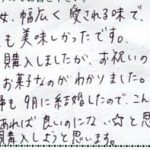 女、幅広く愛される味で、
も美味しかったです。
購入しましたが、お祝いの
お菓子なのがわかりました。
も9月に結婚したので、こん
あれば良いのにな☆と思
購入しようと思います。